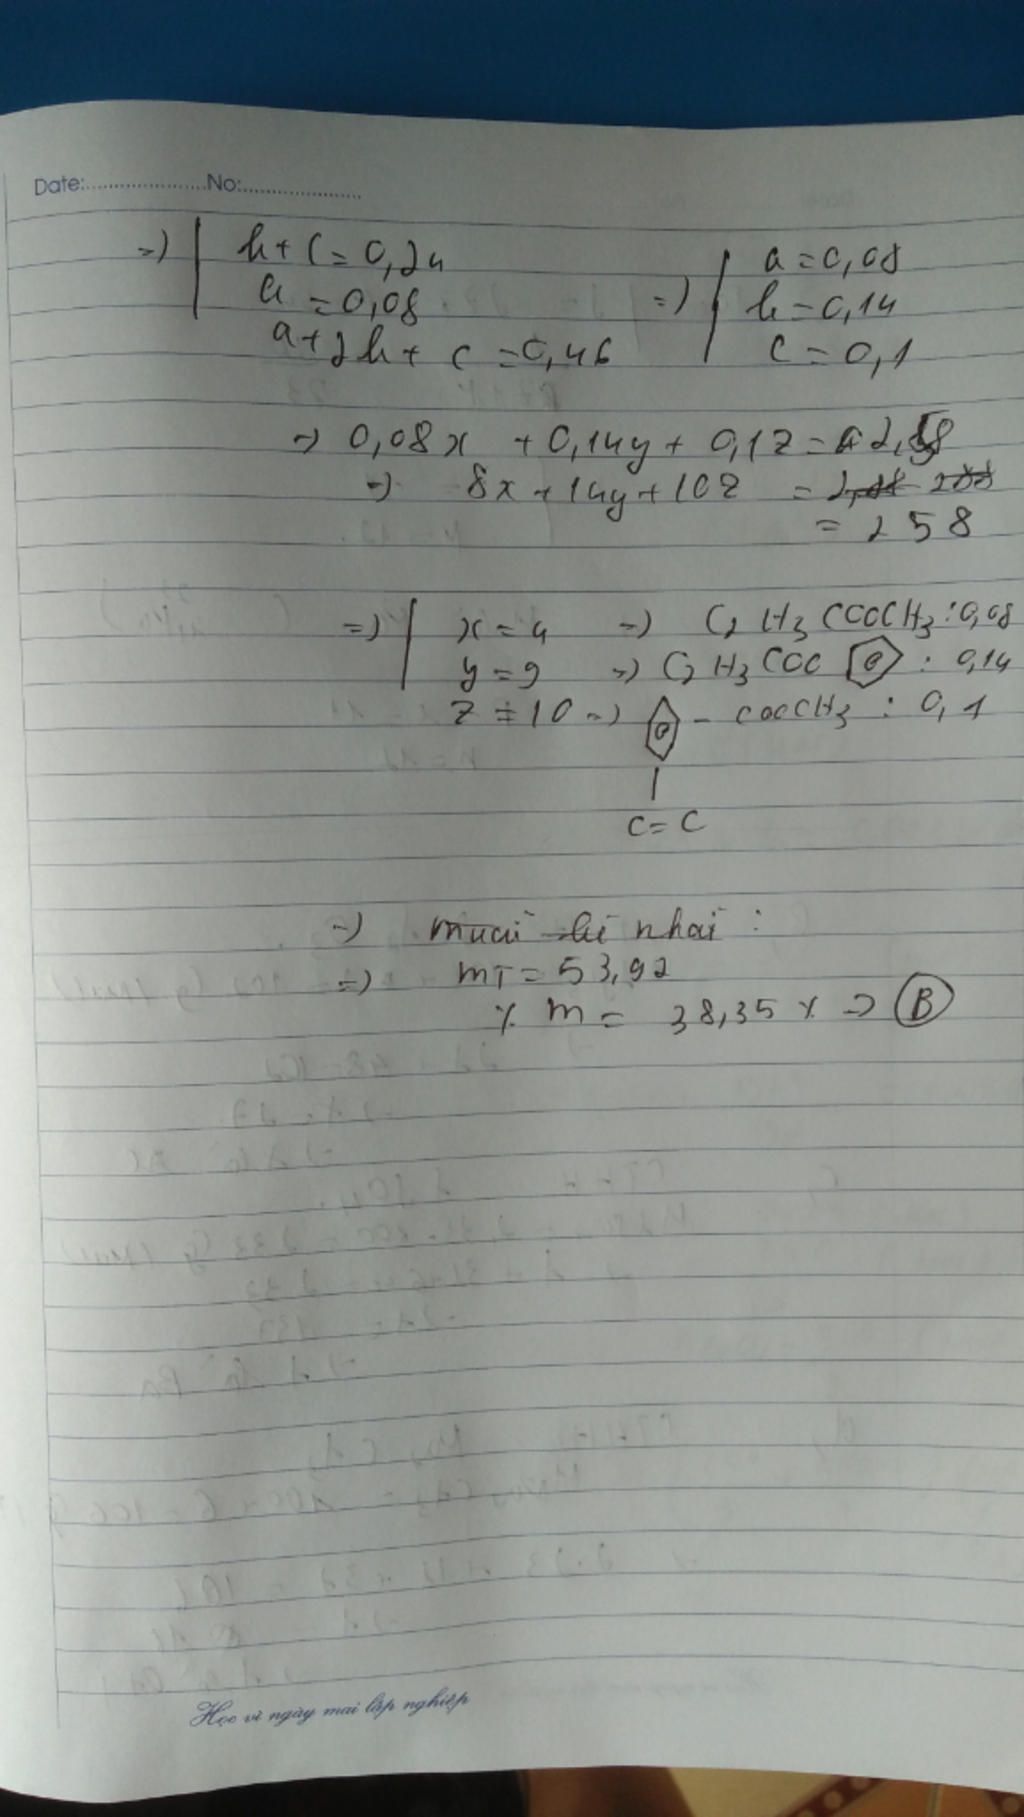 Date:....................No:....................
=) b + c = 0,24
a = 0,08
a + 2b + c = 0,46
=) a = 0,08
b = 0,14
c = 0,1
=) 0,08x + 0,14y + 0,1z = 2,58
=) 8x + 14y + 10z =
= 258
=) x = 4 =) C2H3COOCH3 : 0,08
y = 9 =) C2H3COO : 0,14
z = 10 =) - COOCH3 : 0,1
C = C
=) muối
=) mT = 53,92
% m = 38,35 % => B
Học vì ngày mai lập nghiệp